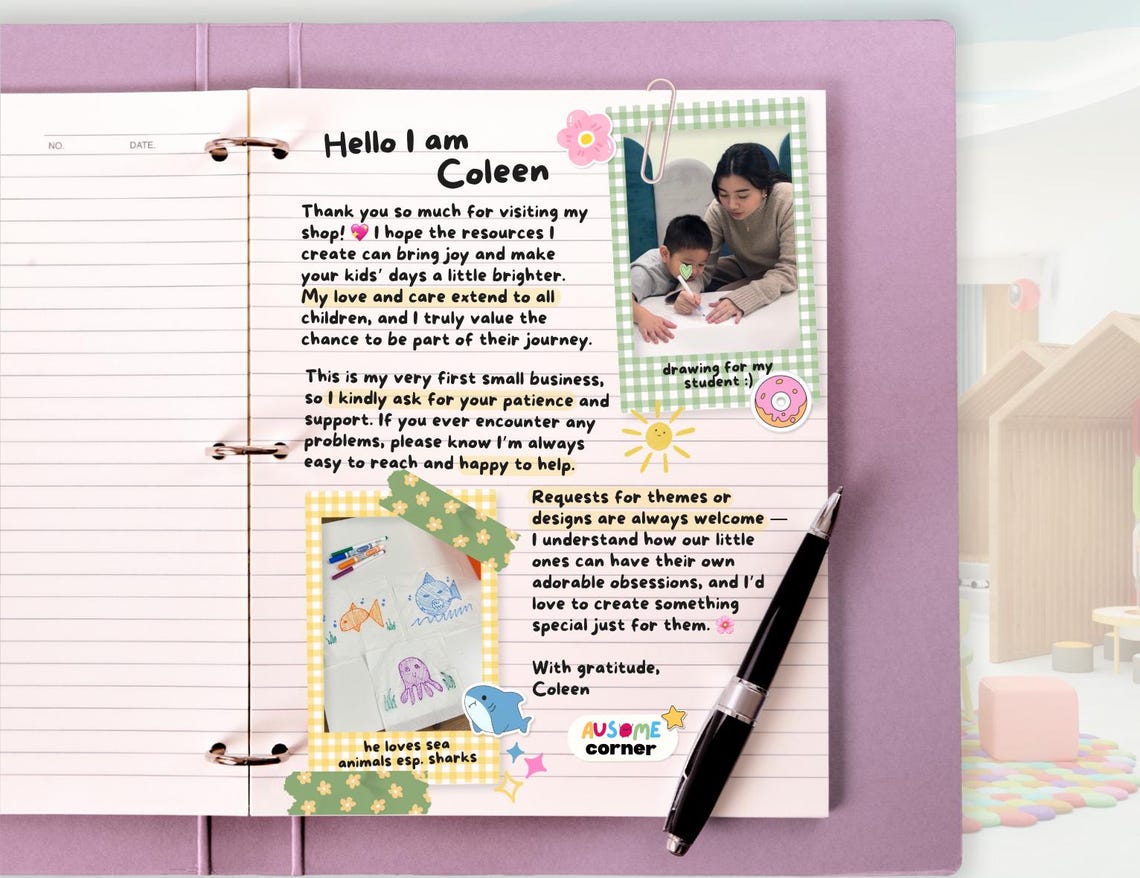 NO.
DATE.
Hello I am
Coleen
Thank you so much for visiting my
shop! 💖 I hope the resources I
create can bring joy and make
your kids’ days a little brighter.
My love and care extend to all
children, and I truly value the
chance to be part of their journey.
This is my very first small business,
so I kindly ask for your patience and
support. If you ever encounter any
problems, please know I’m always
easy to reach and happy to help.
drawing for my
student :)
Requests for themes or
designs are always welcome —
I understand how our little
ones can have their own
adorable obsessions, and I’d
love to create something
special just for them. 🌸
With gratitude,
Coleen
he loves sea
animals esp. sharks
AUSOME
corner